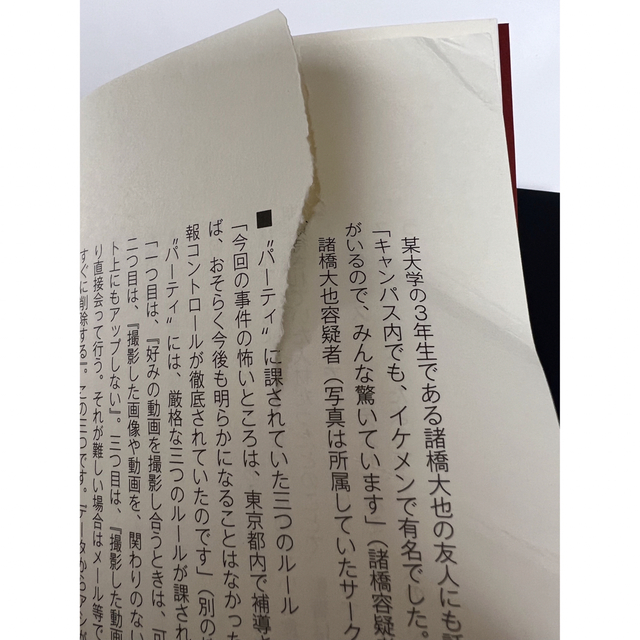 某大学の3年生である諸橋大也の友人にも
「キャンパス内でも、イケメンで有名でした。
がいるので、みんな驚いています」（諸橋容疑
諸橋大也容疑者（写真は所属していたサーク
■“パーティ”に課されていた三つのルール
「今回の事件の怖いところは、東京都内で補導
ば、おそらく今後も明らかになることはなかった
報コントロールが徹底されていたのです」（別の
“パーティ”には、厳格な三つのルールが課され
「一つ目は、『好みの動画を撮影し合うときは、可
二つ目は、『撮影した画像や動画を、関わりのない
ト上にもアップしない』。三つ目は、『撮影した動画
り直接会って行う。それが難しい場合はメール等で
すぐに削除する』。この三つです。データから